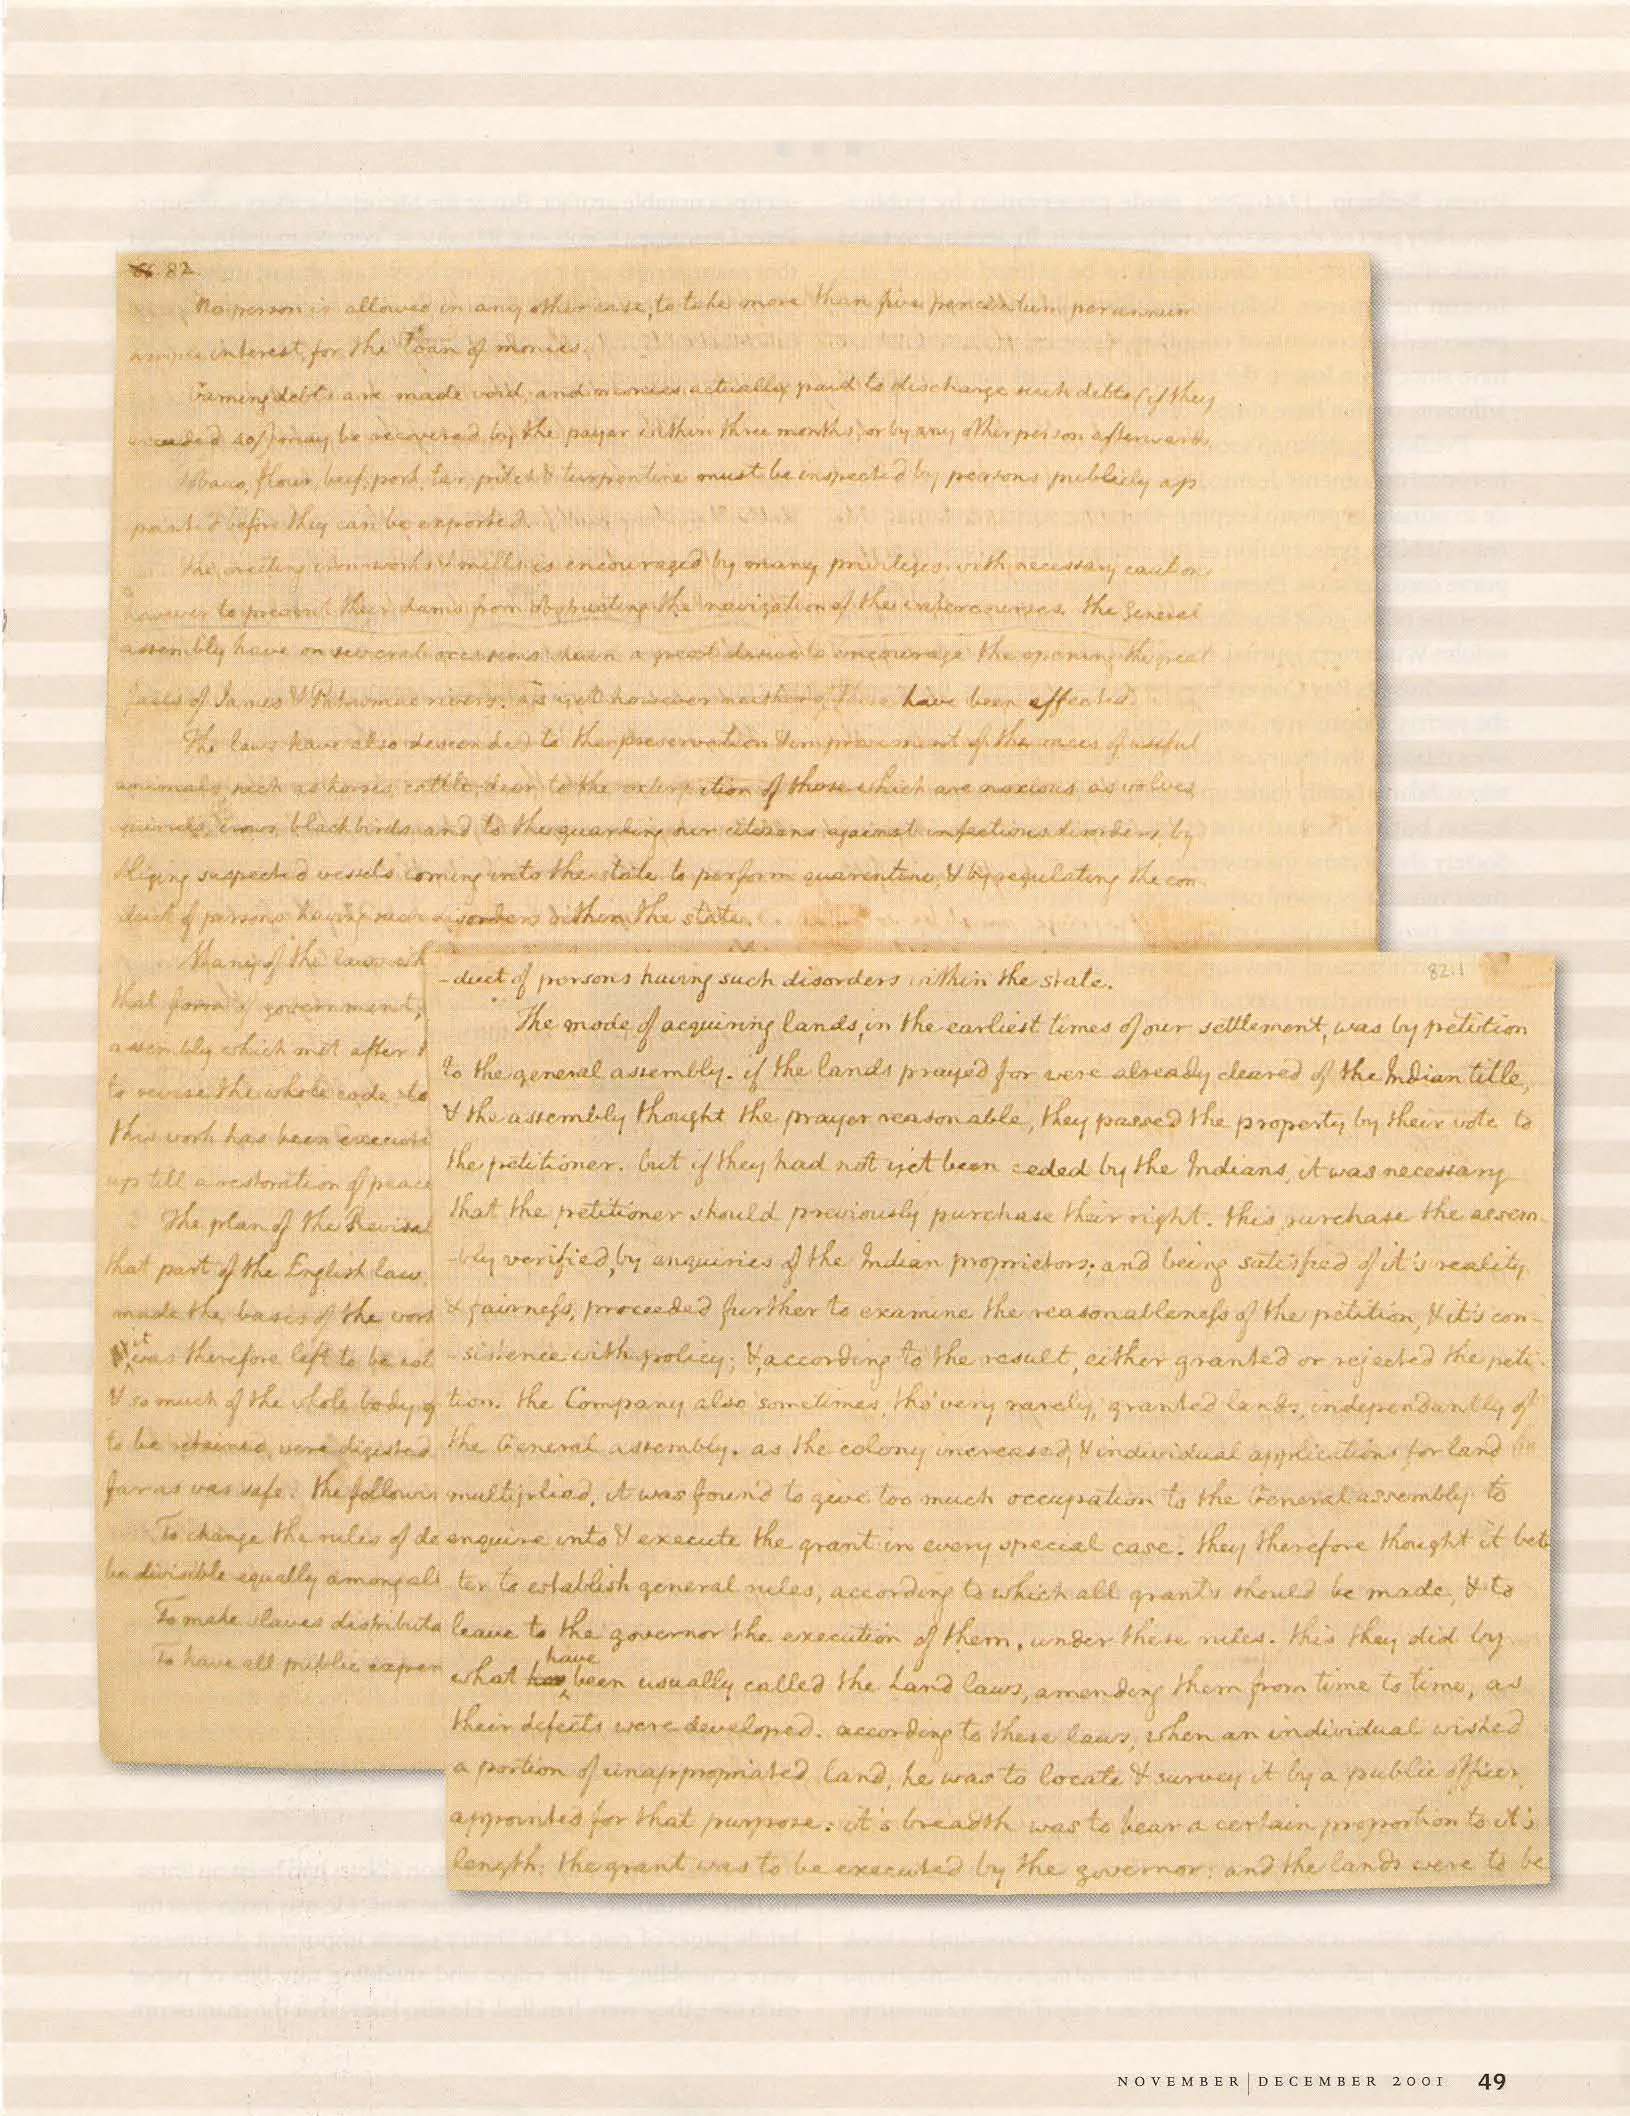 82
No person is allowed in any other case, to take more than five per centum per annum
simple interest, for the loan of monies.
Gaming debts are made void, and monies actually paid to discharge such debts (if they
exceeded 40/) may be recovered by the payer within three months, or by any other person afterwards.
Tobacco, flour, beef, pork, tar, pitch & turpentine must be inspected by persons publicly ap
pointed before they can be exported.
The erecting iron-works & mills is encouraged by many privileges, with necessary cautions
however to prevent their dams from obstructing the navigation of the watercourses. the General
assembly have on several occasions shewn a great desire to encourage the opening the great
falls of James & Patowmac rivers. as yet however neither of these have been effected.
The laws have also descended to the preservation & improvement of the races of useful
animals, such as horses, cattle, deer; to the extirpation of those which are noxious, as wolves,
squirrels, crows, blackbirds; and to the guarding our citizens against infectious disorders, by
obliging suspected vessels coming into the state to perform quarentine, & by regulating the con
duct of persons having such disorders within the state.
Many of the laws wh
that form of government,
assembly which met after t
to revise the whole code, to
this work has been executed
up till a restoration of peace
The plan of the Revisal
that part of the English law
made the basis of the work
it
was therefore left to be col
& so much of the whole body of
to be retained, were digested
far as was safe. the followin
To change the rules of de
be divisible equally among all
To make slaves distributa
To have all public expen
82.1
-duct of persons having such disorders within the state.
The mode of acquiring lands, in the earliest times of our settlement, was by petition
to the general assembly. if the lands prayed for were already cleared of the Indian title,
& the assembly thought the prayer reasonable, they passed the property by their vote to
the petitioner. but if they had not yet been ceded by the Indians, it was necessary
that the petitioner should previously purchase their right. this purchase the assem-
-bly verified, by enquiries of the Indian proprietors; and being satisfied of it's reality
& fairness, proceeded further to examine the reasonableness of the petition, & it's con-
-sistence with policy; &, according to the result, either granted or rejected the peti-
tion. the Company also sometimes, tho' very rarely, granted lands, independantly of
the General assembly. as the colony increased, & individual applications for land
multiplied, it was found to give too much occupation to the General assembly to
enquire into & execute the grant in every special case. they therefore thought it bet
ter to establish general rules, according to which all grants should be made, & to
leave to the governor the execution of them, under these rules. this they did by
have
what has been usually called the Land laws, amending them from time to time, as
their defects were developed. according to these laws, when an individual wished
a portion of unappropriated land, he was to locate & survey it by a public officer
appointed for that purpose: it's breadth was to bear a certain proportion to it's
length: the grant was to be executed by the governor: and the lands were to be
NOVEMBER | DECEMBER 2001 49